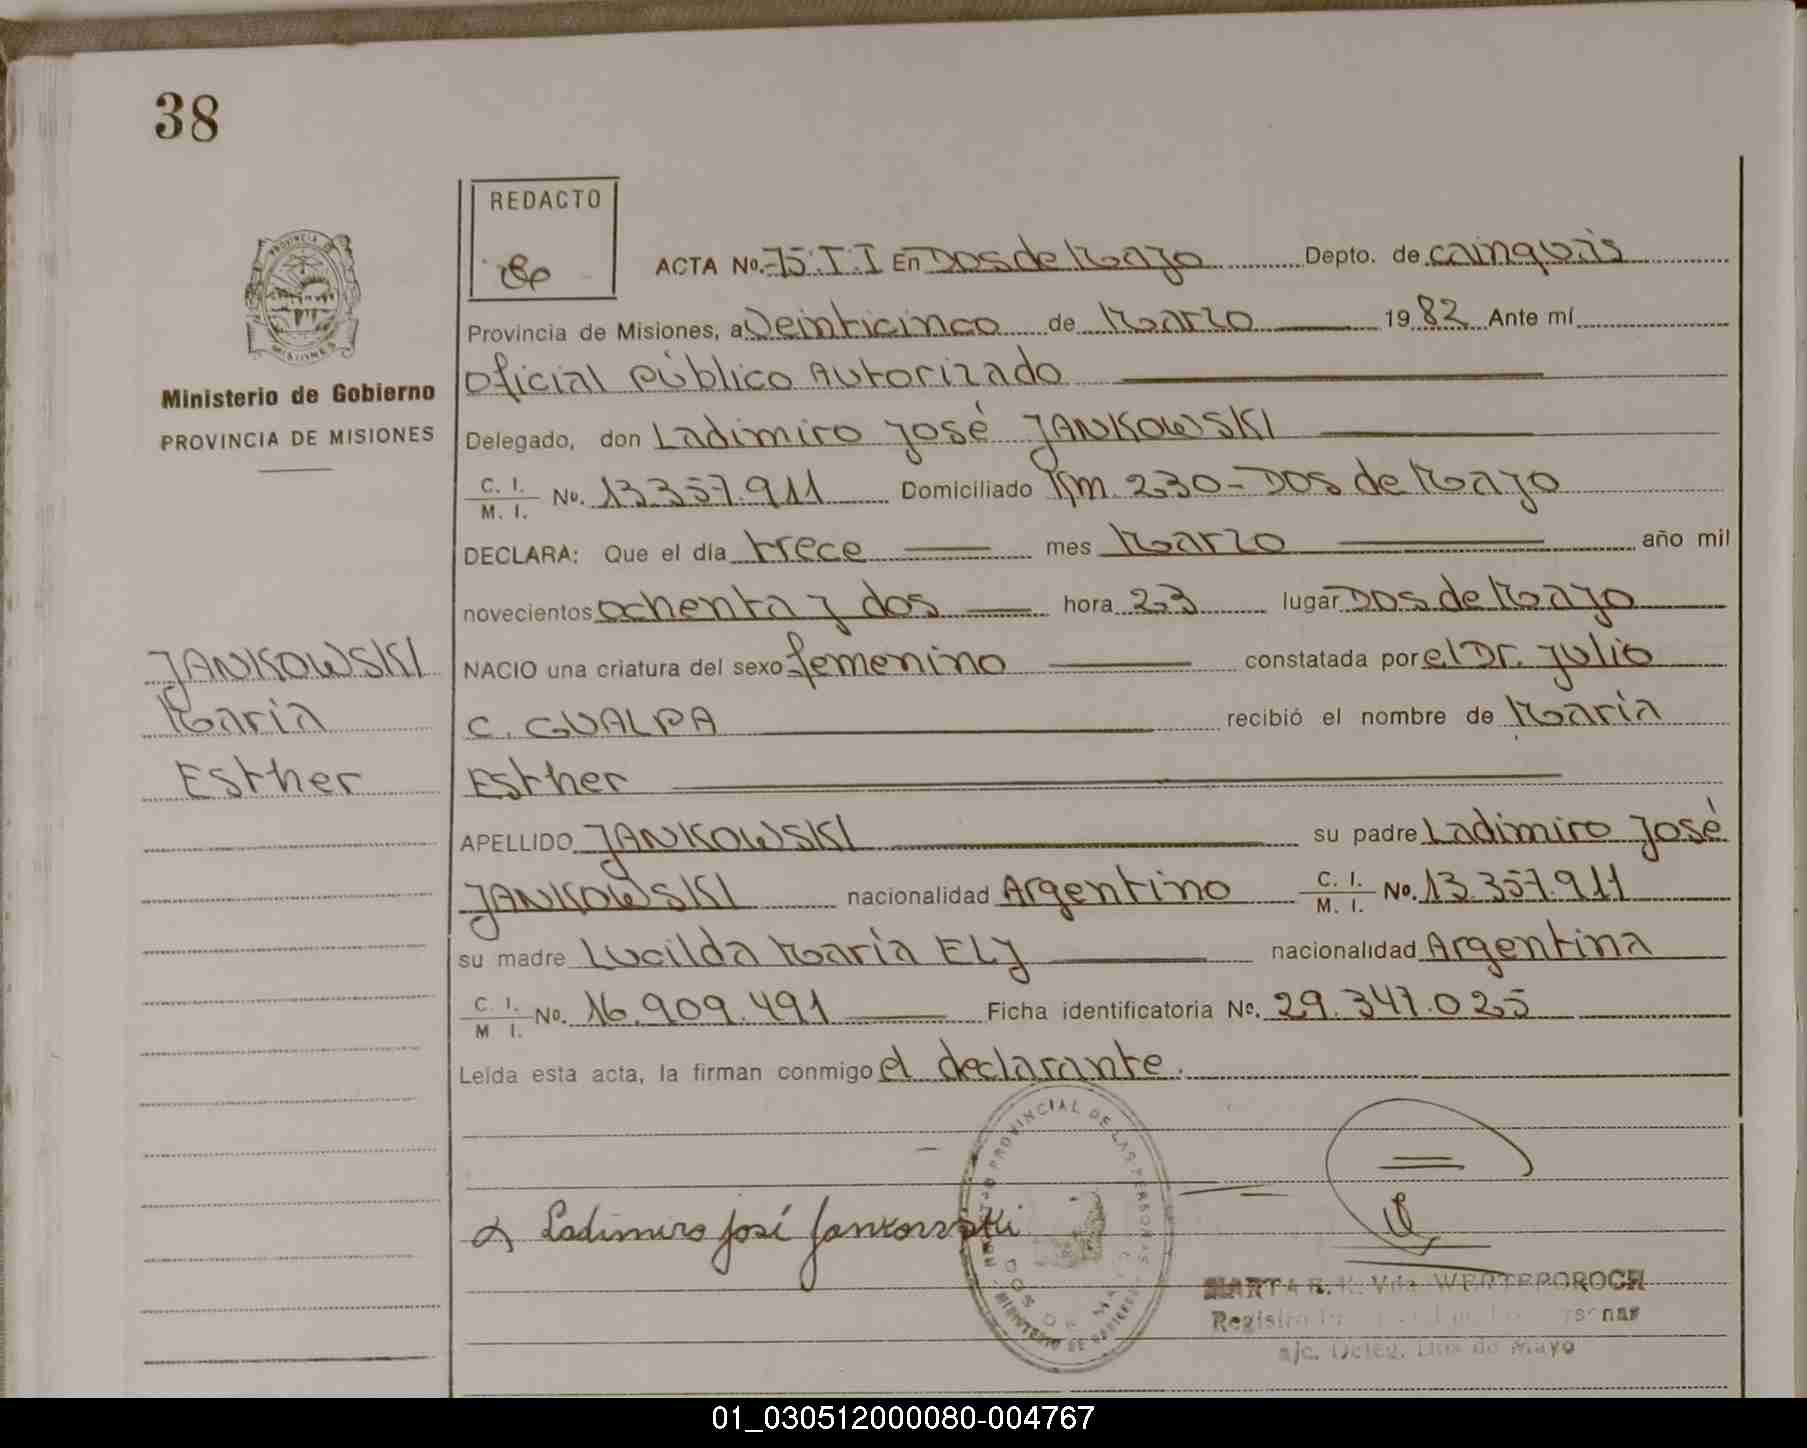 38
REDACTO
PROVINCIA DE
MISIONES
ACTA No. 75.T.I En Dos de Mayo Depto. de Cainguás
Provincia de Misiones, a Veinticinco de Marzo 1982 Ante mí
Oficial Público Autorizado
Ministerio de Gobierno
PROVINCIA DE MISIONES
Delegado, don Ladimiro José JANKOWSKI
C. I. / M. I. No. 13.357.911 Domiciliado Km. 230 - Dos de Mayo
DECLARA: Que el día trece mes Marzo año mil
novecientos ochenta y dos hora 23 lugar Dos de Mayo
JANKOWSKI
María
Esther
NACIO una criatura del sexo femenino constatada por el Dr. Julio
C. GUALPA recibió el nombre de María
Esther
APELLIDO JANKOWSKI su padre Ladimiro José
JANKOWSKI nacionalidad Argentino C. I. / M. I. No. 13.357.911
su madre Lucilda María ELY nacionalidad Argentina
C. I. / M I. No. 16.909.491 Ficha identificatoria No. 29.347.025
Leída esta acta, la firman conmigo el declarante.
PROVINCIAL DE LAS PERSONAS
DOS DE MAYO
MINISTERIO DE GOBIERNO
Ladimiro José Jankowski
MARTA Vda. WERTEPOROCH
Registro
a/c. Deleg. Dos de Mayo
01_030512000080-004767